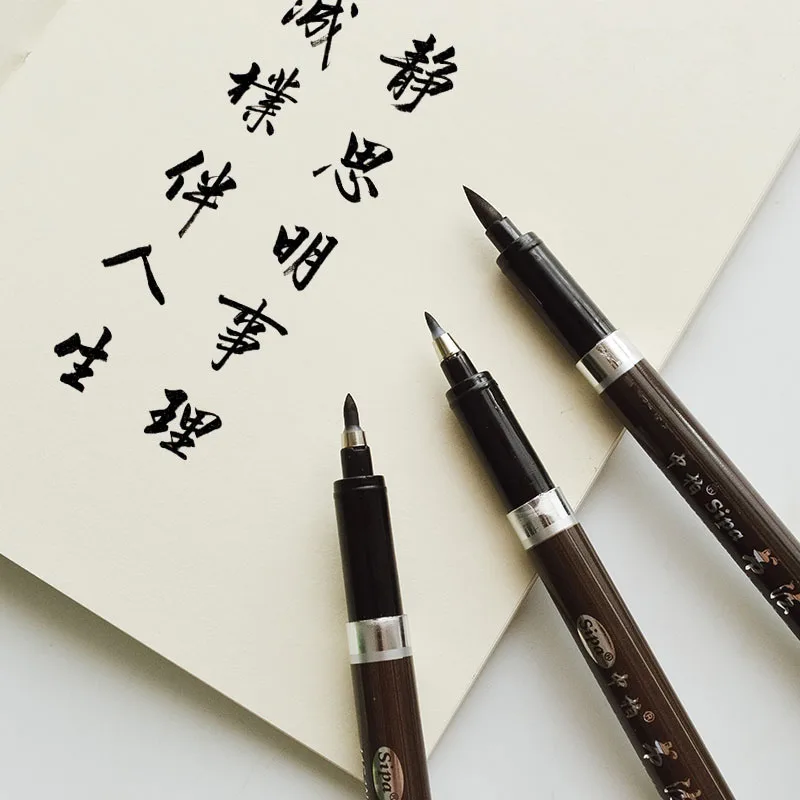 静思明事理
樸伴人生
中柏® Sipa 书法
Sipa® 中柏® 书法
Sipa®